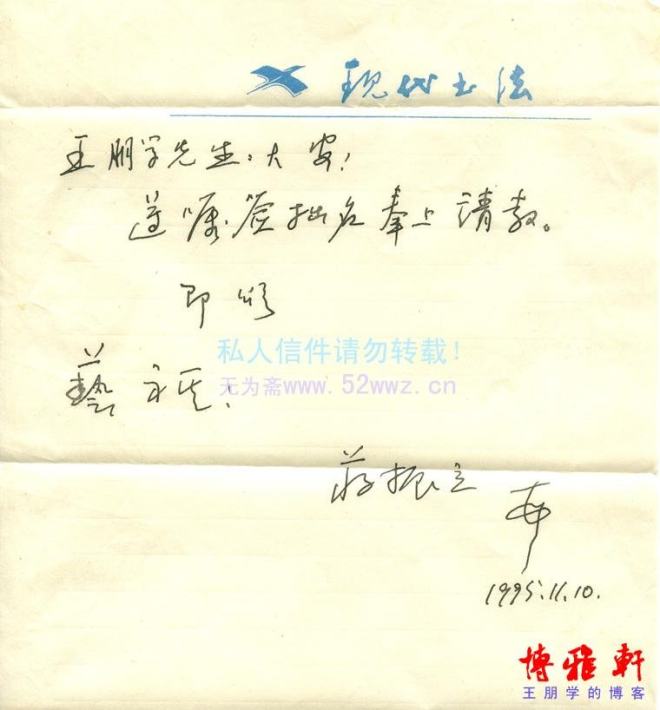 现代书法
王朋学先生:大安!
遵嘱签拙名奉上请教。
即颂
私人信件请勿转载!
艺祺!
无为斋www.52wwz.cn
蒋振立
1995.11.10.
博雅轩
王朋学的博客